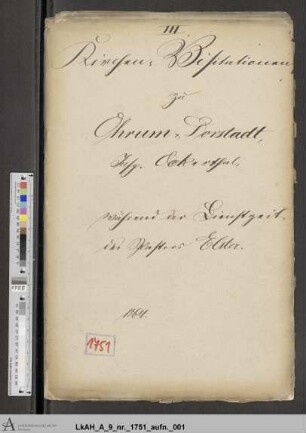 III.
Kirchen-Visitationen
zu
Ohrum-Dorstadt,
Insp. Ockerthal,
während der Dienstzeit
des Pastors
1864.
1751
LkAH_A_9_nr._1751_aufn._001